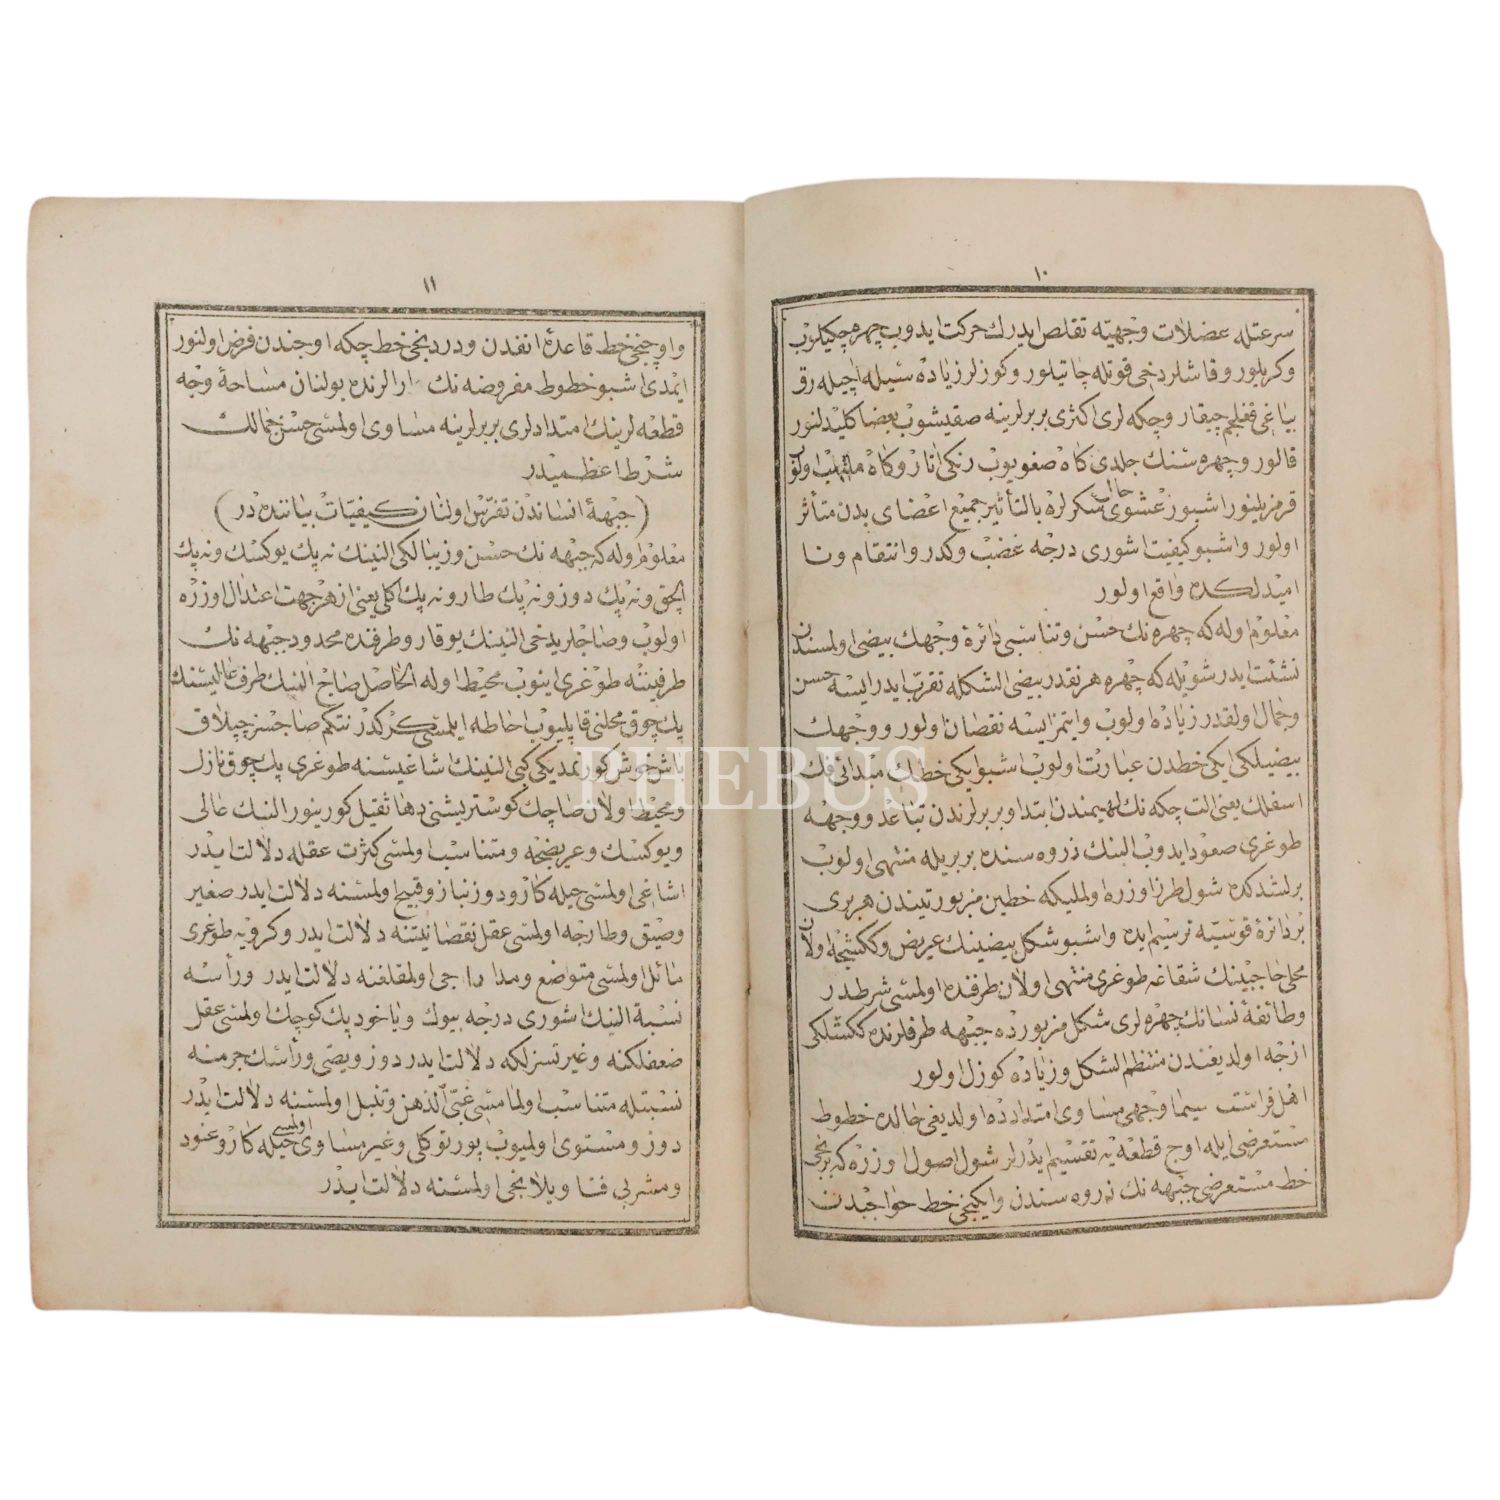 ١٠
سرعتله عضلات وجهیه تقلص ایدرك حركت ایدوب چهره چكیلوب
وكریلور وقاشلر دخی قوتله چاتیلور وكوزلر زیاده سیله اچیله رق
بیاغی قغیلجم چیقار وچكه لری اكثری بربرلرینه صقیشوب بعضا كلیدلنور
قالور وچهره سنك جلدی كاه صغویوب رنكی اتار وكاه ملتهب اولوب
قرمزیلنور اشبو زعشوی حال عسكرلره بالتأثیر جمیع اعضای بدن متأثر
اولور واشبو كیفیت اشوری درجه غضب وكدر وانتقام ونا
امیدلكده واقع اولور
معلوم اوله كه چهره نك حسن وتناسبی دائرهٔ وجهك بیضی اولمسندن
نشئت ایدر شویله كه چهره هر نقدر بیضی الشكله تقرب ایدر ایسه حسن
وجمال اولقدر زیاده اولوب وایتمز ایسه نقصان اولور ووجهك
بیضیلكی ایكی خطدن عبارت اولوب اشبو ایكی خطك مبدائی فك
اسفلك یعنی الت چكه نك لهیمندن ابتدا وبربرلرندن تباعد ووجهه
طوغری صعود ایدوب النك ذروه سنده بربریله منتهی اولوب
برلشدكده شول طرز اوزره اولملیكه خطین مزبورتیندن هر بری
بر دائرهٔ قوسیه ترسیم ایده واشبو شكل بیضینك عریض وككشجه اولان
محلی حاجبینك شقاغه طوغری منتهی اولان طرفنده اولمسی شرطدر
وطائفهٔ نسانك چهره لری شكل مزبورده جبهه طرفلرنده ككشلكی
ازجه اولدیغندن منتظم الشكل وزیاده كوزل اولور
اهل فراست سیما وجهی مساوی امتدادده اولدیغی حالده خطوط
مستعرضی ایله اوج قطعه یه تقسیم ایدرلر شول اصول اوزره كه برنجی
خط مستعرضی جبهه نك ذروه سندن وایكنجی خط حواجبدن
١١
واوچنجی خط قاعدهٔ انفدن ودردنجی خط چكه اوجندن فرض اولنور
ایمدی اشبو خطوط مفروضه نك ارالرنده بولنان مساحهٔ وجه
قطعه لرینك امتدادلری بربرلرینه مساوی اولمسی حسن جمالك
شرط اعظمیدر
(جبههٔ انساندن تفرس اولنان كیفیات بیاننده در)
معلوم اوله كه جبهه نك حسن وزیبالكی النینك نه پك یوكسك ونه پك
الچق ونه پك دوز ونه پك طار ونه پك اكلی یعنی از هر جهت اعتدال اوزره
اولوب وصاچلر یدخی النینك یوقارو طرفنده محدود جبهه نك
طرفینه طوغری اینوب محیط اوله الحاصل صاچ النك طرف عالیسنك
پك چوق محلنی قاپلیوب احاطه ایلمسی مكركدر نتكم صاجسز چپلاق
باش خوش كورنمدیكی كبی النینك اشاغیسنه طوغری پك چوق نازل
ومحیط اولان صاچك كوستریشی دها ثقیل كورینور النك عالی
ویوكسك وعریضجه ومتناسب اولمسی كثرت عقله دلالت ایدر
اشاغی اولمسی حیله كار ودوزنباز وقبیح اولمسنه دلالت ایدر صغیر
وضیق وطارجه اولمسی عقل نقصانیتنه دلالت ایدر وكرویه طوغری
مائل اولمسی متواضع ومداراجی اولمقلغنه دلالت ایدر ورأسه
نسبة النك اشوری درجه بیوك ویاخود پك كوچك اولمسی عقل
ضعفلكنه وغیرتسزلكه دلالت ایدر دوز ویصی ورأسك جرمنه
نسبتله متناسب اولمامسی غبی الذهن وتنبل اولمسنه دلالت ایدر
دوز ومستوی اولمیوب پورتوكلی وغیر مساوی اولمسی حیله كار وعنود
ومشربی فنا ویلانجی اولمسنه دلالت ایدر
PHEBUS